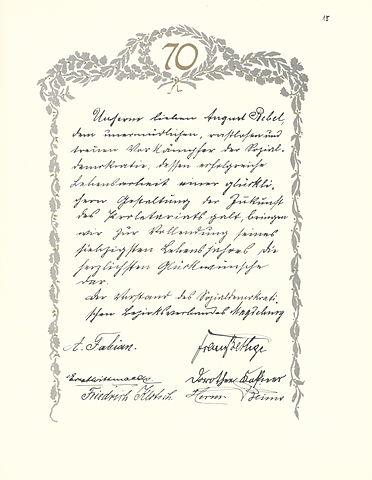 18
70
Unserm lieben August Bebel,
dem unermüdlichen, rastlosen und
treuen Vorkämpfer der Sozial-
demokratie, dessen erfolgreiche
Lebensarbeit einer glückli-
chern Gestaltung der Zukunft
des Proletariats galt, bringen
wir zur Vollendung seines
siebzigsten Lebensjahres die
herzlichsten Glückwünsche
dar.
Der Vorstand des Sozialdemokrati-
schen Bezirksverbandes Magdeburg
A. Fabian.
Friedrich Holtsch. Herm. Beims